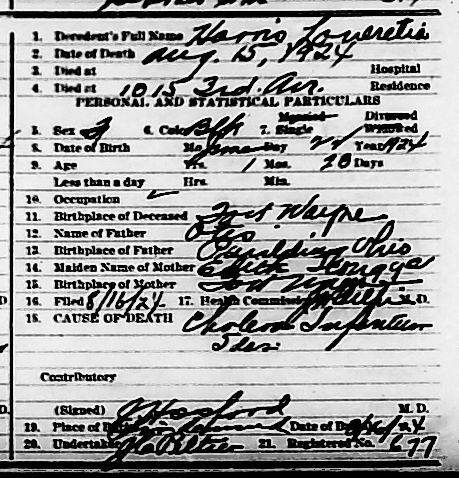 1. Decedent's Full Name Harris Loueretia
2. Date of Death Aug. 15, 1924
3. Died at Hospital
4. Died at 1015 3rd. Av. Residence
PERSONAL AND STATISTICAL PARTICULARS
Married Divorced
5. Sex F 6. Color Blk 7. Single Widowed
8. Date of Birth Mo. June Day Year 1924
9. Age Yrs. 1 Mos. 20 Days
Less than a day Hrs. Min.
10. Occupation
11. Birthplace of Deceased Fort Wayne
12. Name of Father Otis
13. Birthplace of Father Paulding Ohio
14. Maiden Name of Mother Edith
15. Birthplace of Mother Fort Wayne
16. Filed 8/16/24 17. Health Commissioner M. D.
18. CAUSE OF DEATH Cholera Infantum
5 das.
Contributory
(Signed) M. D.
19. Place of Burial Date of Burial 8/16/24
20. Undertaker 21. Registered No. 677